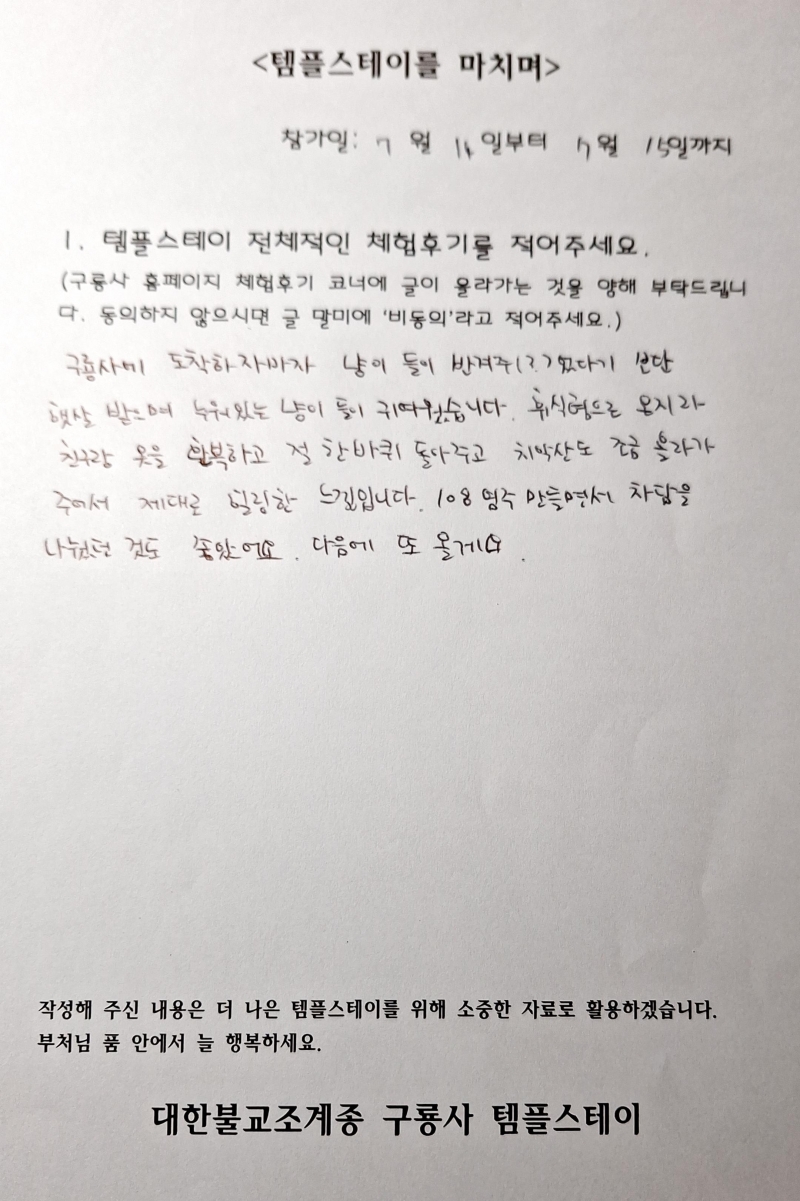 <템플스테이를 마치며>
참가일: 7 월 14일부터 7월 15일까지
1. 템플스테이 전체적인 체험후기를 적어주세요.
(구룡사 홈페이지 체험후기 코너에 글이 올라가는 것을 양해 부탁드립니
다. 동의하지 않으시면 글 말미에 '비동의'라고 적어주세요.)
구룡사에 도착하자마자 냥이 들이 반겨주(??)었다기 보단
햇살 받으며 누워있는 냥이 들이 귀여웠습니다. 휴식형으로 온지라
친구랑 옷을 환복하고 절 한바퀴 돌아주고 치악산도 조금 올라가
주어서 제대로 힐링한 느낌입니다. 108 염주 만들면서 차담을
나눴던 것도 좋았어요. 다음에 또 올게요.
작성해 주신 내용은 더 나은 템플스테이를 위해 소중한 자료로 활용하겠습니다.
부처님 품 안에서 늘 행복하세요.
대한불교조계종 구룡사 템플스테이